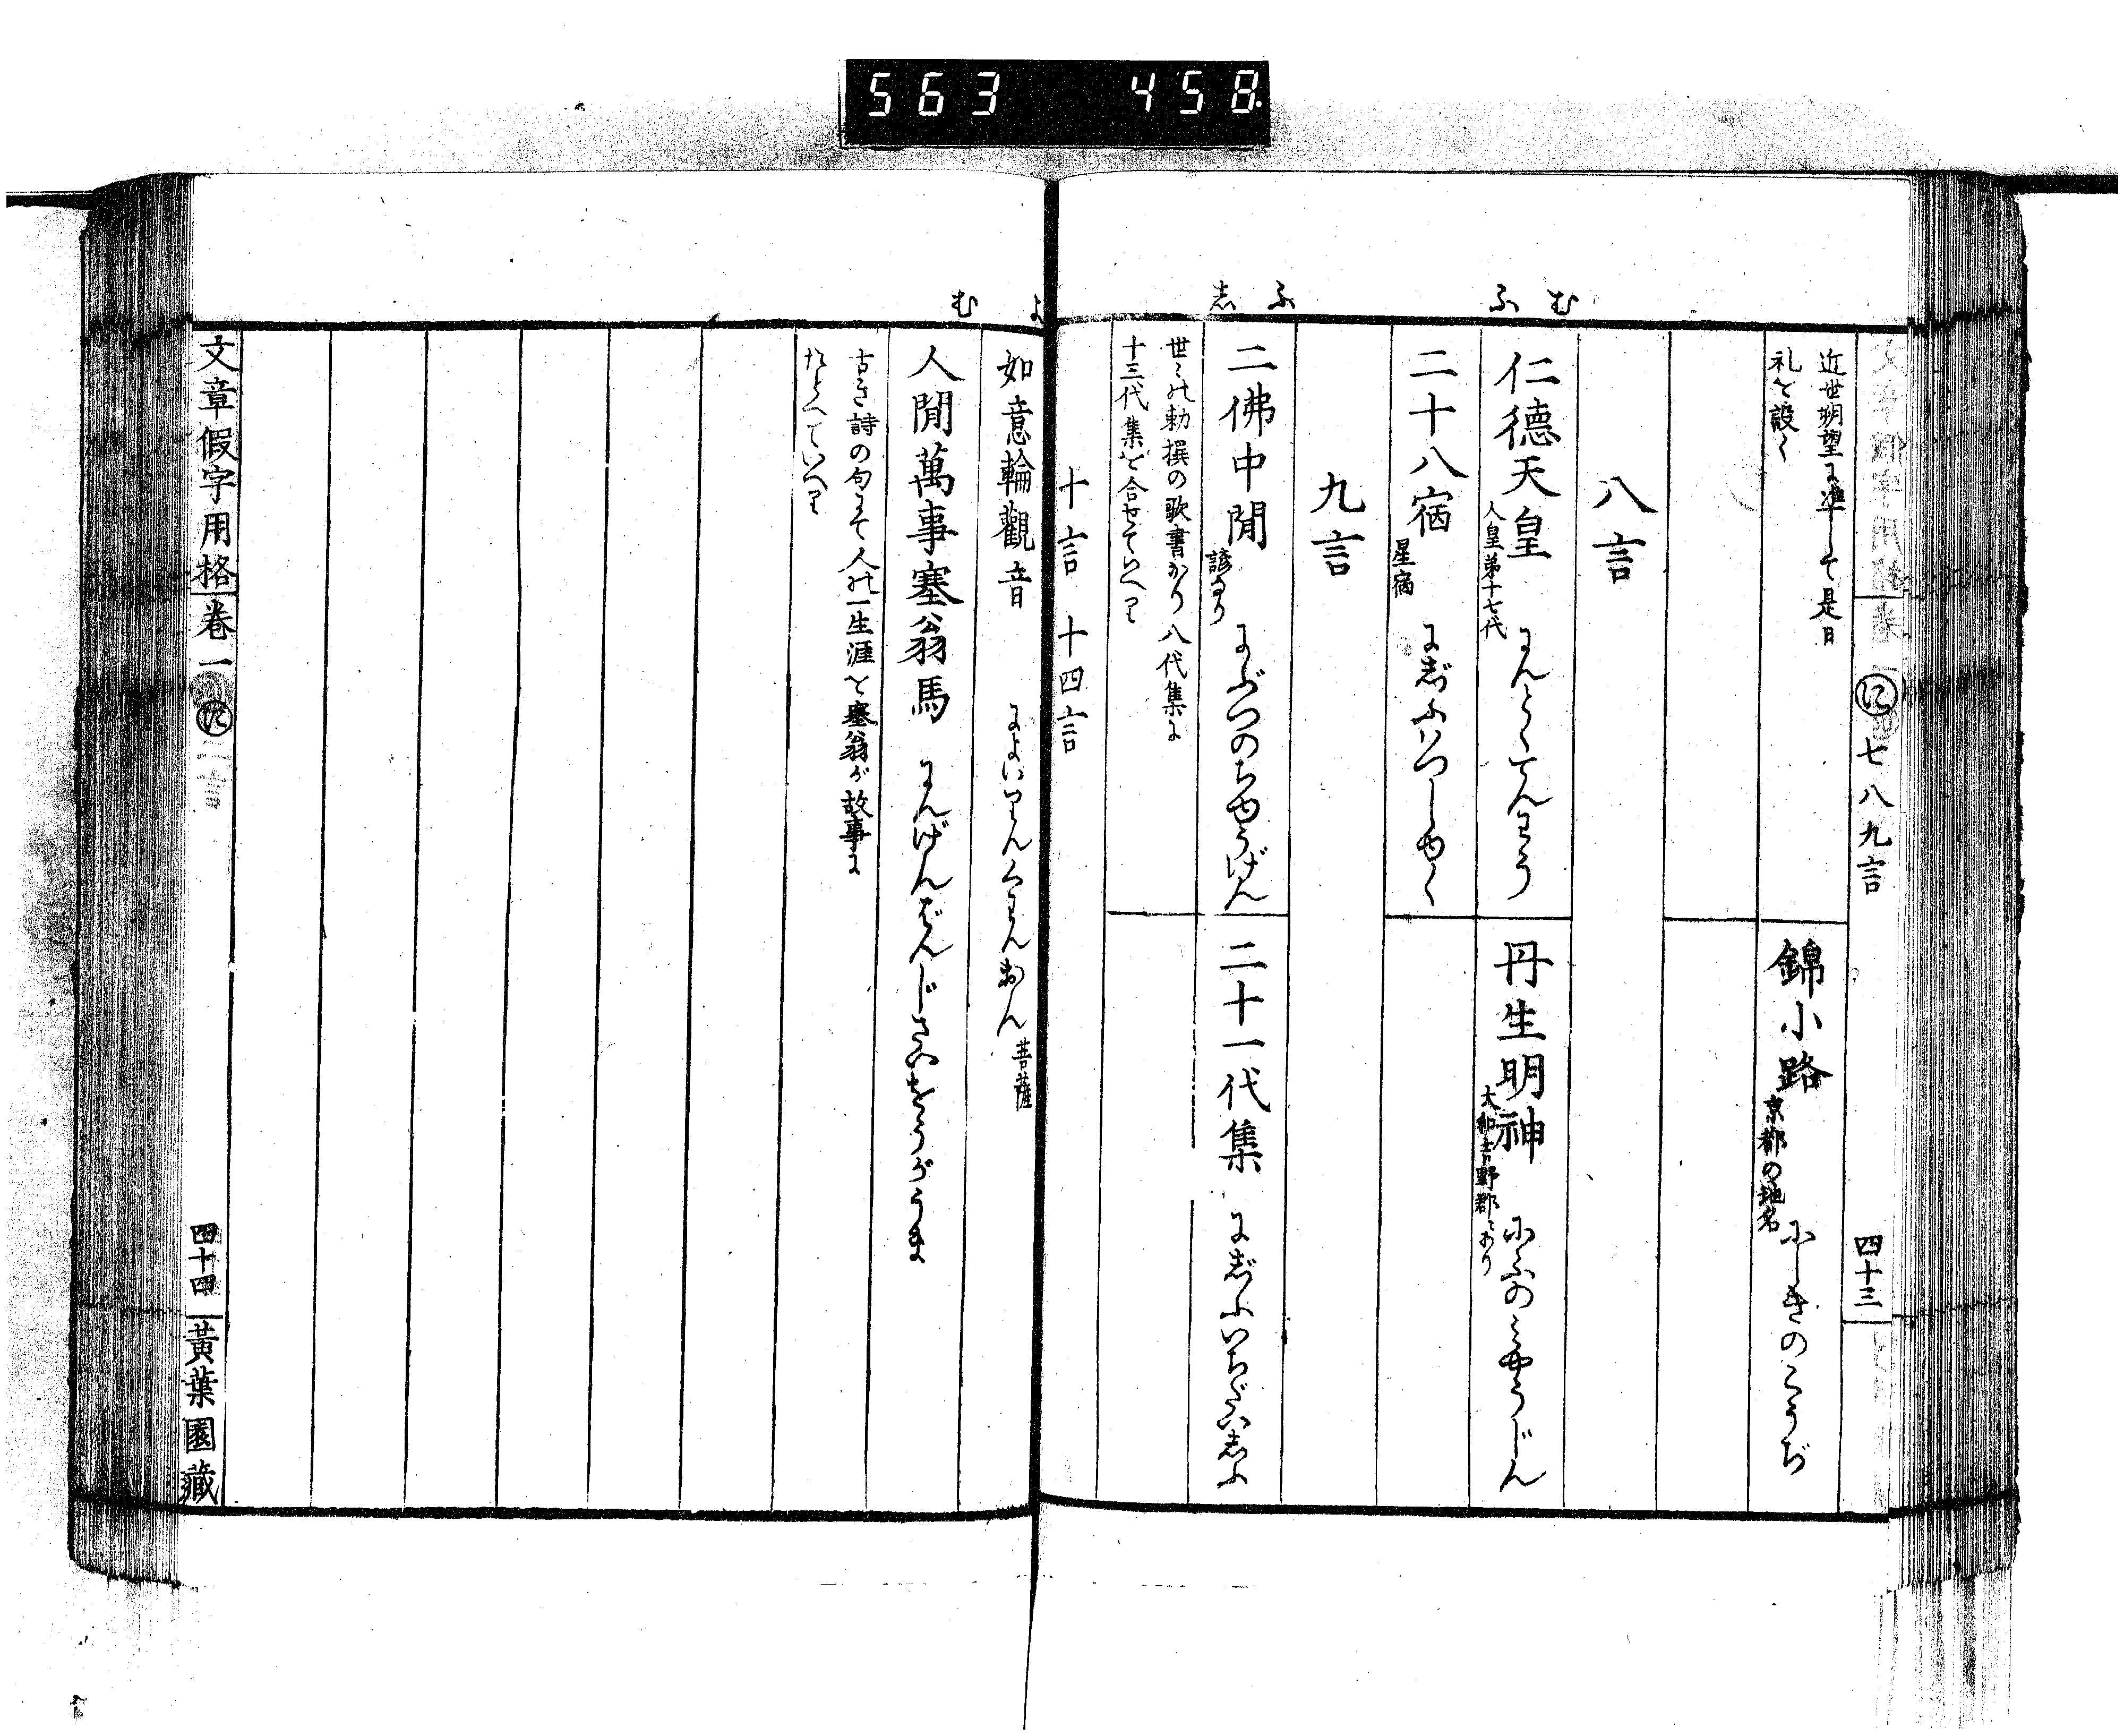 563 458
に 七八九言 四十三
近世朔望に准して是日
礼を設く
錦小路 京都の地名 にしきのこうぢ
八言
む ふ
仁徳天皇 人皇第十七代 にんとくてんわう
丹生明神 大和吉野郡にあり にふのみやうじん
二十八宿 星宿 にじふはつしゆく
九言
ふ し
二佛中間 諺なり にぶつのちゆうげん
二十一代集 にじふいちだいしふ
世々の勅撰の歌書なり八代集に
十三代集を合せていへり
十言 十四言
よ む
如意輪觀音 によいりんくわんおん 菩薩
人間萬事塞翁馬 にんげんばんじさいをうがうま
古き詩の句にて人の一生涯を塞翁が故事に
たとへていへり
文章假字用格 卷一 に 四十四 黃葉園藏